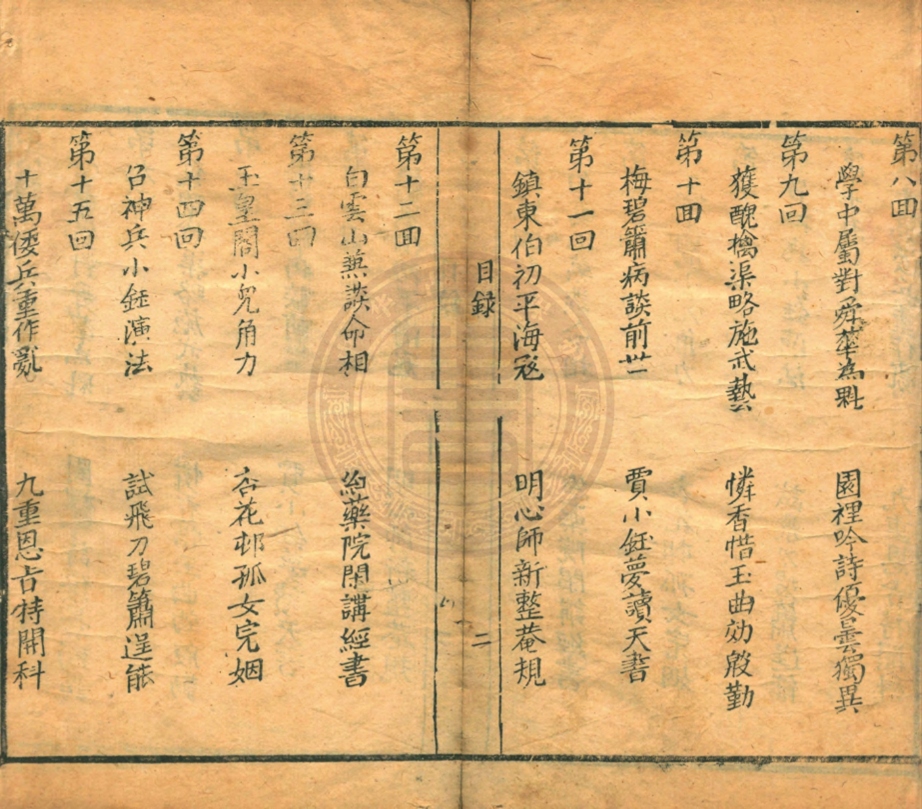 第八回
學中屬對舜華為魁　園裡吟詩優曇獨異
第九回
獲醜擒渠略施武藝　憐香惜玉曲効殷勤
第十回
梅碧簫病談前世　賈小鈺夢讀天書
第十一回
鎮東伯初平海寇　明心師新整菴規
目録
二
第十二回
白雲山兼談命相　芍藥院閑講經書
第十三回
玉皇閣小兒角力　杏花邨孤女完姻
第十四回
召神兵小鈺演法　試飛刀碧簫逞能
第十五回
十萬倭兵重作亂　九重恩旨特開科